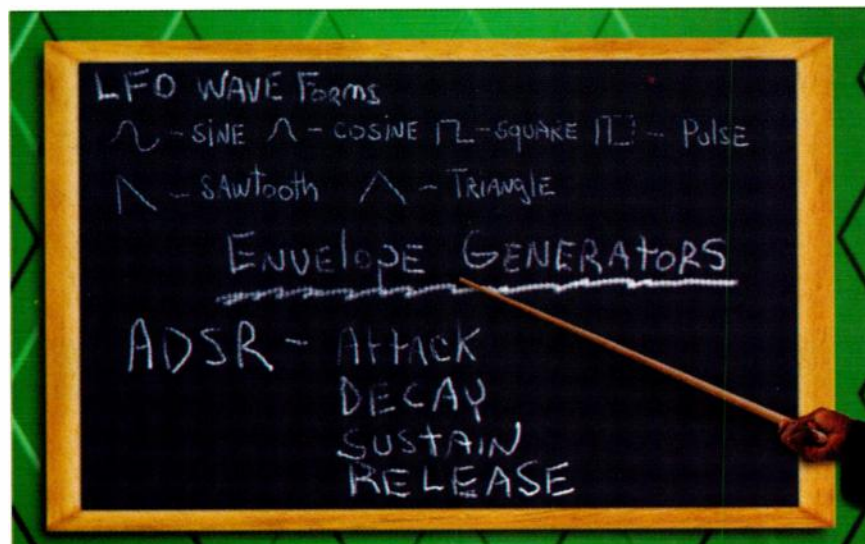 LFO WAVE Forms
- SINE - COSINE - SQUARE - Pulse
- SAWtooth - TRIANGLE
ENVELOPE GENERATORS
ADSR - AttACK
DECAY
SUStAIN
RELEASE